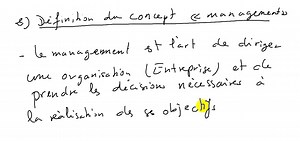 s) Définition du concept « management »
- le management est l'art de diriger
une organisation (Entreprise) et de
prendre les décisions nécessaires à
la réalisation de se objectifs